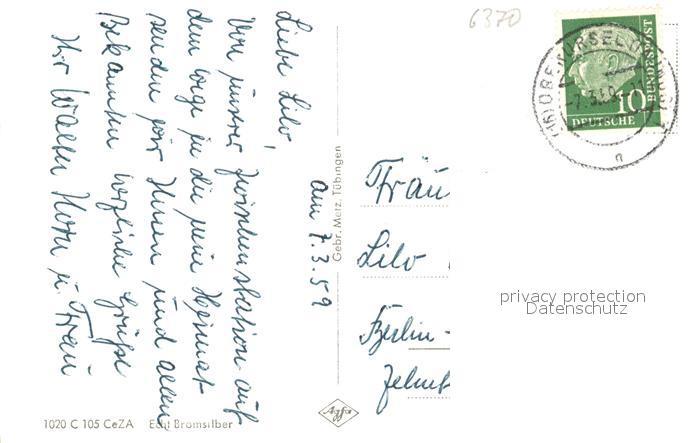 6370
(16) OBERURSEL (TAUNUS)
-7.3.59.-11
a
10
DEUTSCHE
BUNDESPOST
am 7.3.59
Liebe Lilo,
Von unserer Zwischenstation auf
dem Wege in die neue Heimat
senden wir Ihnen und allen
Bekannten herzliche Grüße
Ihr Walter Horn u. Frau
Gebr. Metz, Tübingen
Fräu
Lilo
Berlin-
Zehl
privacy protection
Datenschutz
Agfa
1020 C 105 CeZA Echt Bromsilber